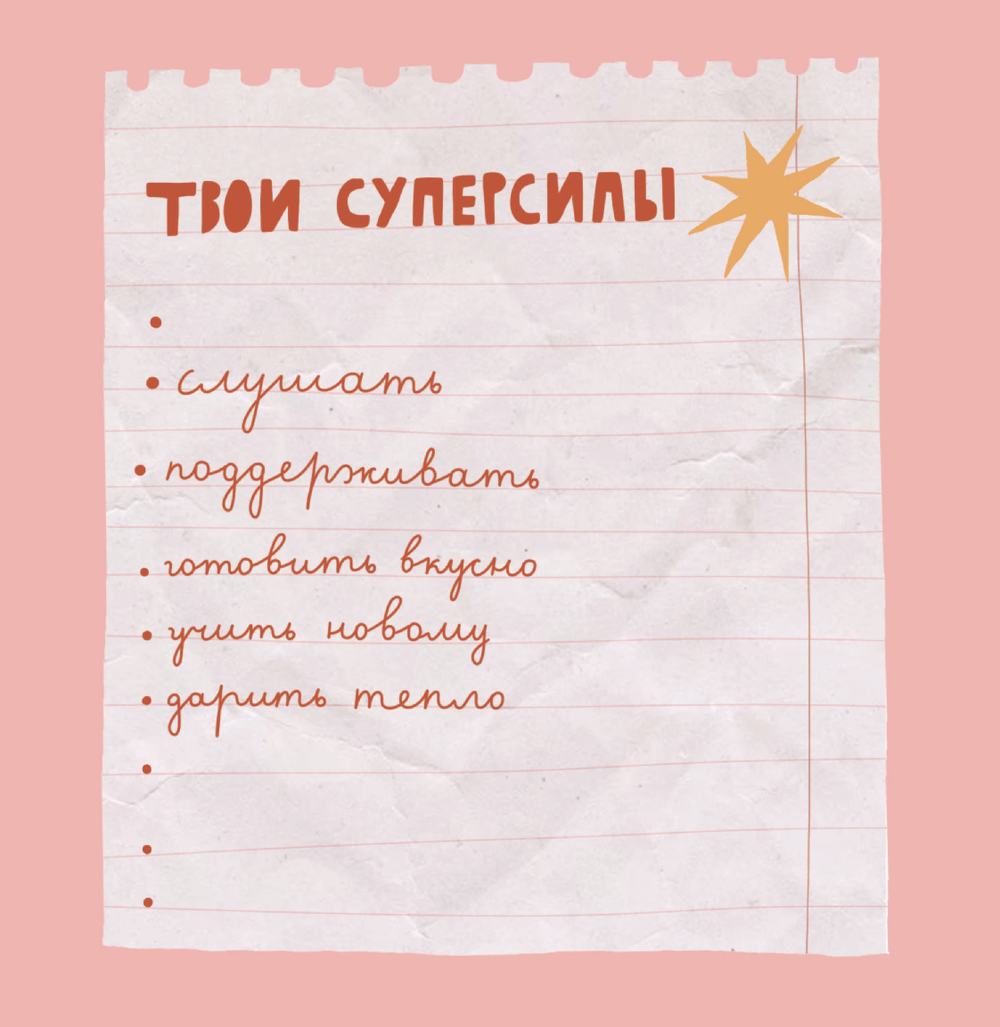 ТВОИ СУПЕРСИЛЫ
•
• слушать
• поддерживать
• готовить вкусно
• учить новому
• дарить тепло
•
•
•